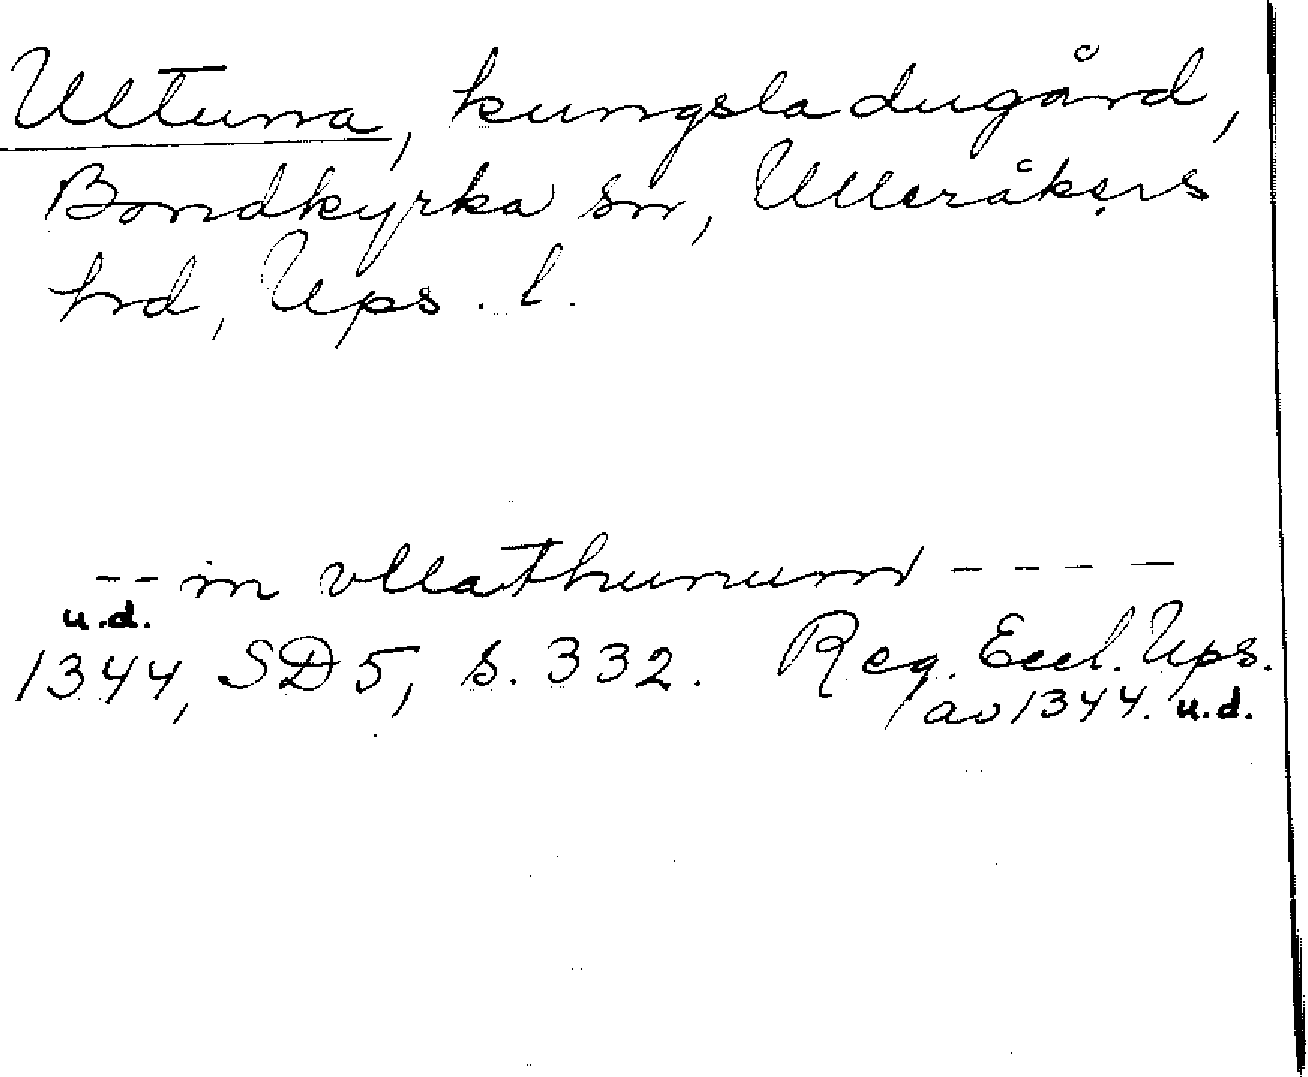 Ultuna, kungsladugård,
Bondkyrka sn, Ulleråkers
hrd, Ups. l.
-- in vllathunum - - - -
u.d.
1344, SD5, s. 332. Reg. Eccl. Ups.
av 1344. u.d.